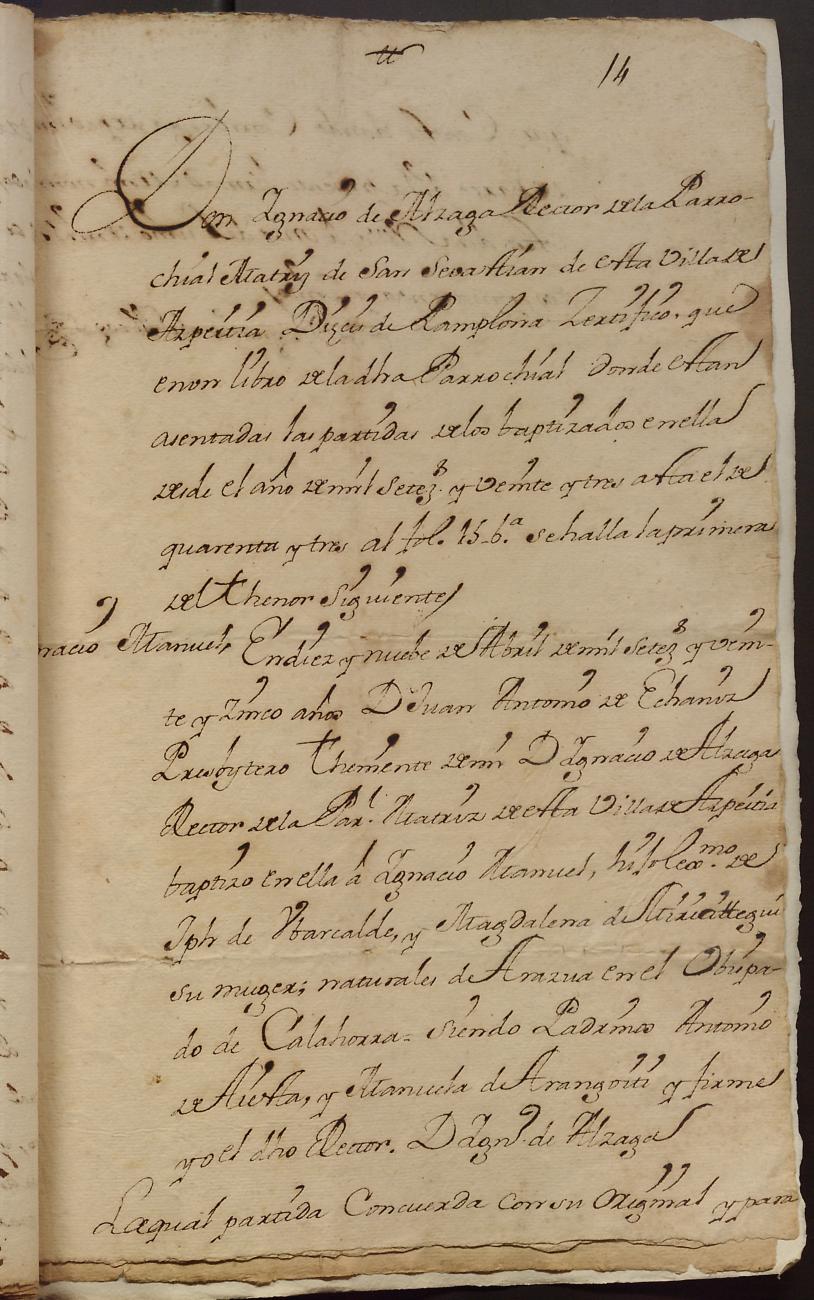 tt
14
Don Ygnacio de Alzaga Rector de la Parro-
chial Matriz de San Sevastian de esta Villa de
Azpeitia Dizcis de Pamplona Zertifico. que
en un libro de la dha Parrochial donde estan
asentadas las partidas de los baptizados en ella
desde el año de mil setezs y veinte y tres asta el de
quarenta y tres al fol. 15. b.ª se halla la primera
del thenor siguiente
nacio Manuel, En diez y nuebe de Abril de mil setezs y vein-
te y zinco años D Juan Antonio de Echaniz
Presbytero theniente de mi D Ygnacio de Alzaga
Rector de la Par.l Matriz de esta Villa de Azpeitia
baptizo en ella â Ygnacio Manuel, hijo lexmo. de
Jph de Ybarcalde, y Magdalena de
su muger; naturales de Arazua en el Obispa-
do de Calahorra= siendo Padrinos Antonio
de Aiesta, y Manuela de Arangoiti y firme
yo el dho Rector. D Ygn.º de Alzaga
La qual partida Concuerda con su Original y para